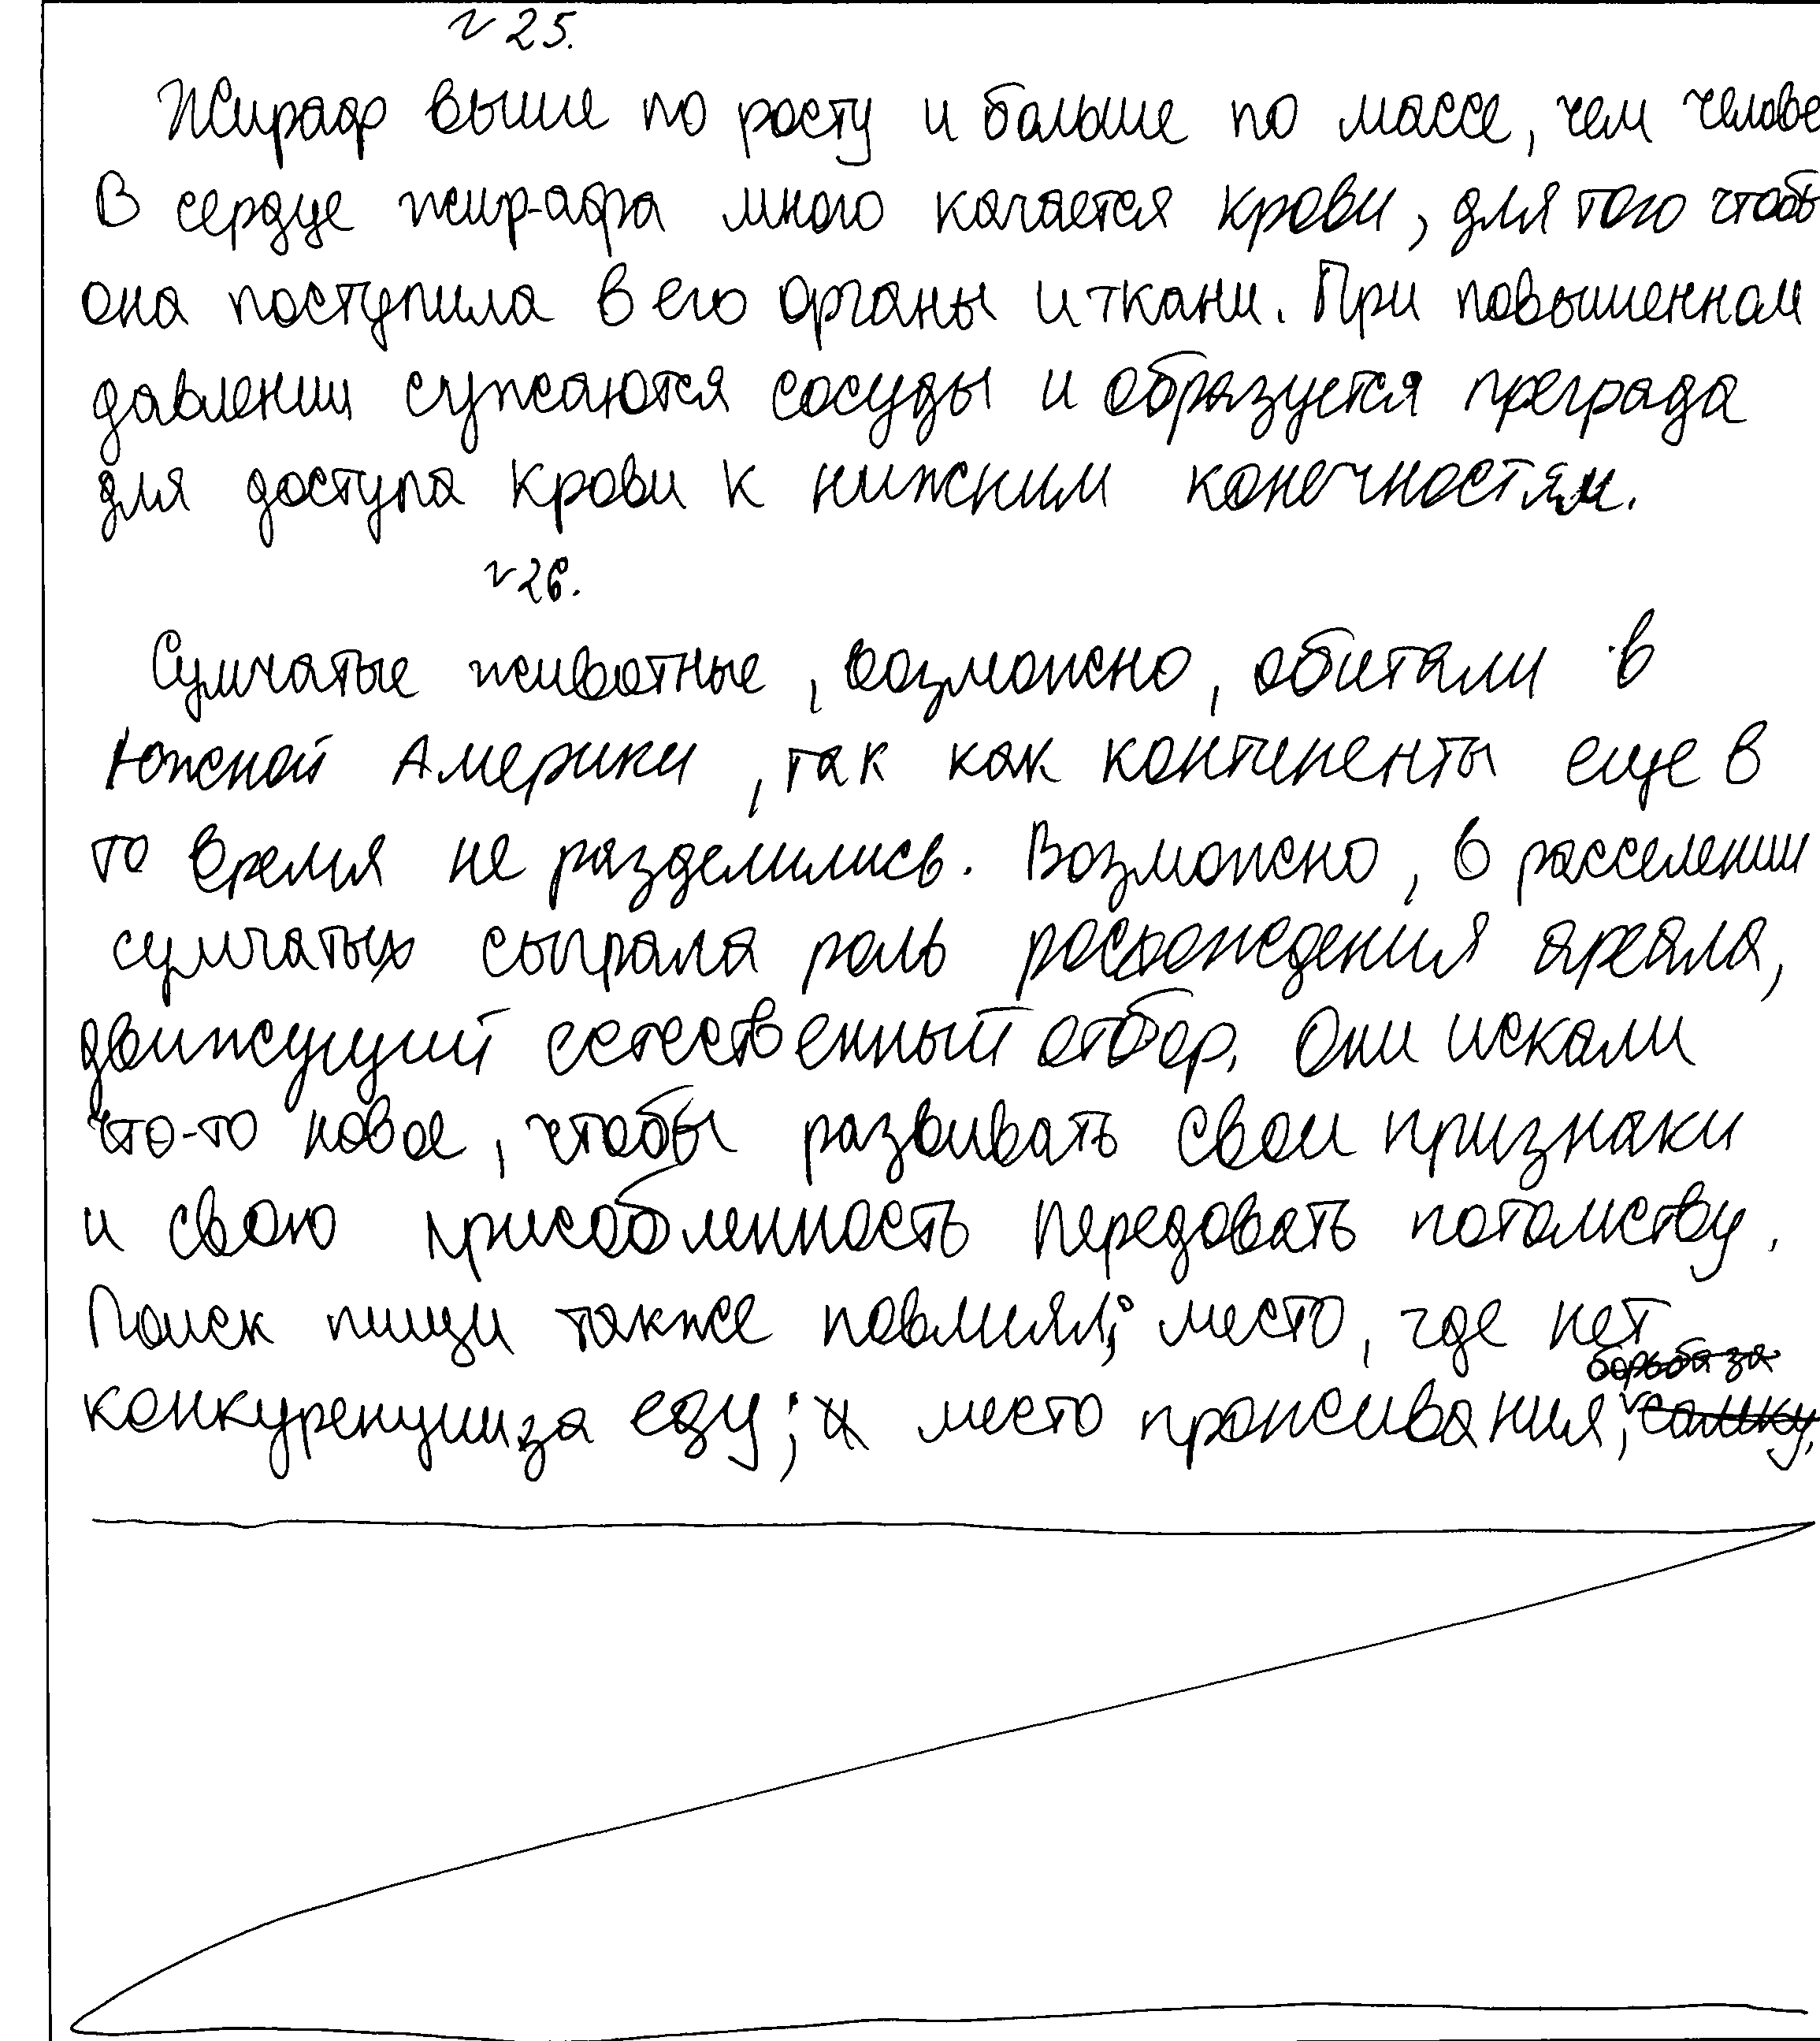 № 25.
Жираф выше по росту и больше по массе, чем челове
В сердце жир-афа много качается крови, для того чтобы
она поступила в его органы и ткани. При повышенном
давлении сужаются сосуды и образуется преграда
для доступа крови к нижним конечностям.
№ 26.
Сумчатые животные, возможно, обитали в
Южной Америки, так как континенты еще в
то время не разделились. Возможно, в расселении
сумчатых сыграла роль расхождения ареала,
движущий естественный отбор. Они искали
что-то новое, чтобы развивать свои признаки
и свою присобленность передовать потомству.
Поиск пищи также повлиял; место, где нет
борьба за
конкуренции за еду; и место проживания, самку.